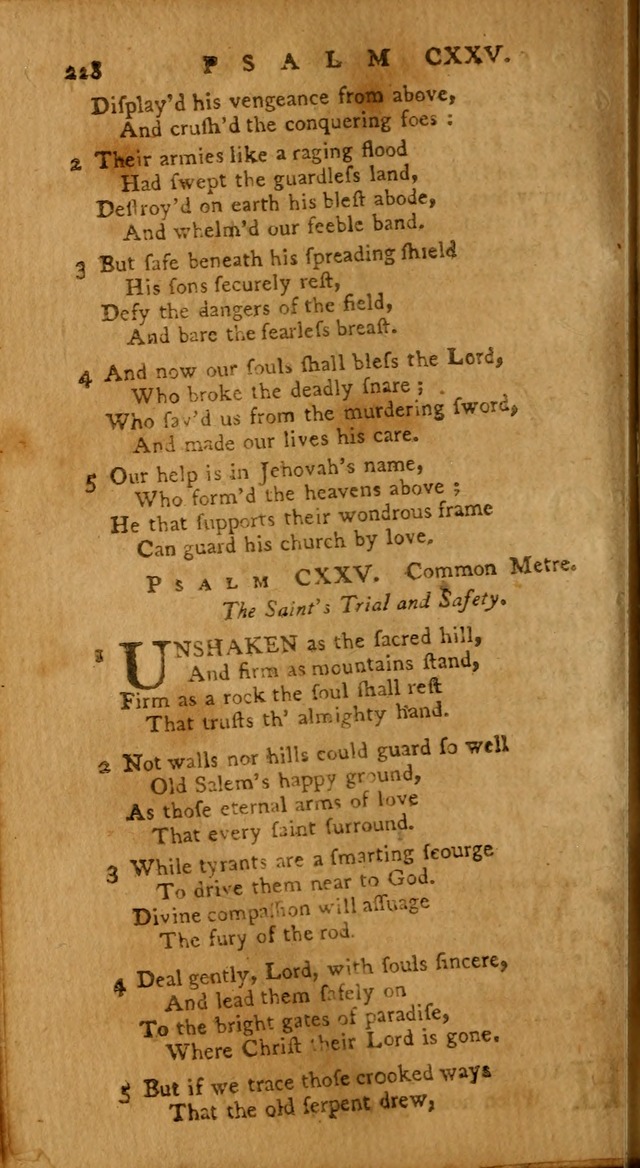 228 PSALM CXXV.
Diſplay'd his vengeance from above,
And cruſh'd the conquering foes :
2 Their armies like a raging flood
Had ſwept the guardleſs land,
Deſtroy'd on earth his bleſt abode,
And whelm'd our feeble band.
3 But ſafe beneath his ſpreading ſhield
His ſons ſecurely reſt,
Defy the dangers of the field,
And bare the fearleſs breaſt.
4 And now our ſouls ſhall bleſs the Lord,
Who broke the deadly ſnare ;
Who ſav'd us from the murdering ſword,
And made our lives his care.
5 Our help is in Jehovah's name,
Who form'd the heavens above ;
He that ſupports their wondrous frame
Can guard his church by love.
PSALM CXXV. Common Metre.
The Saint's Trial and Safety.
1 UNSHAKEN as the ſacred hill,
And firm as mountains ſtand,
Firm as a rock the ſoul ſhall reſt
That truſts th' almighty hand.
2 Not walls nor hills could guard ſo well
Old Salem's happy ground,
As thoſe eternal arms of love
That every ſaint ſurround.
3 While tyrants are a ſmarting ſcourge
To drive them near to God.
Divine compaſſion will aſſuage
The fury of the rod.
4 Deal gently, Lord, with ſouls ſincere,
And lead them ſafely on
To the bright gates of paradiſe,
Where Chriſt their Lord is gone.
5 But if we trace thoſe crooked ways
That the old ſerpent drew,